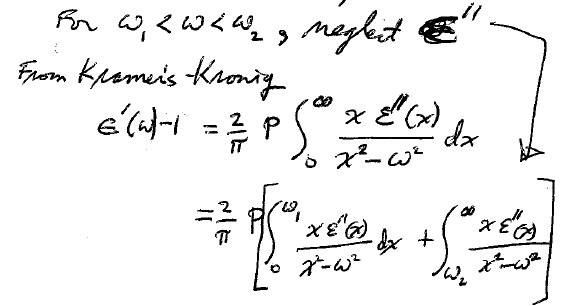 For ω₁ < ω < ω₂, neglect ε''
From Kramers-Kronig
ε'(ω)-1 = 2/π P ∫₀^∞ x ε''(x) / (x²-ω²) dx
= 2/π P[∫₀^ω₁ x ε''(x) / (x²-ω²) dx + ∫_ω₂^∞ x ε''(x) / (x²-ω²)]